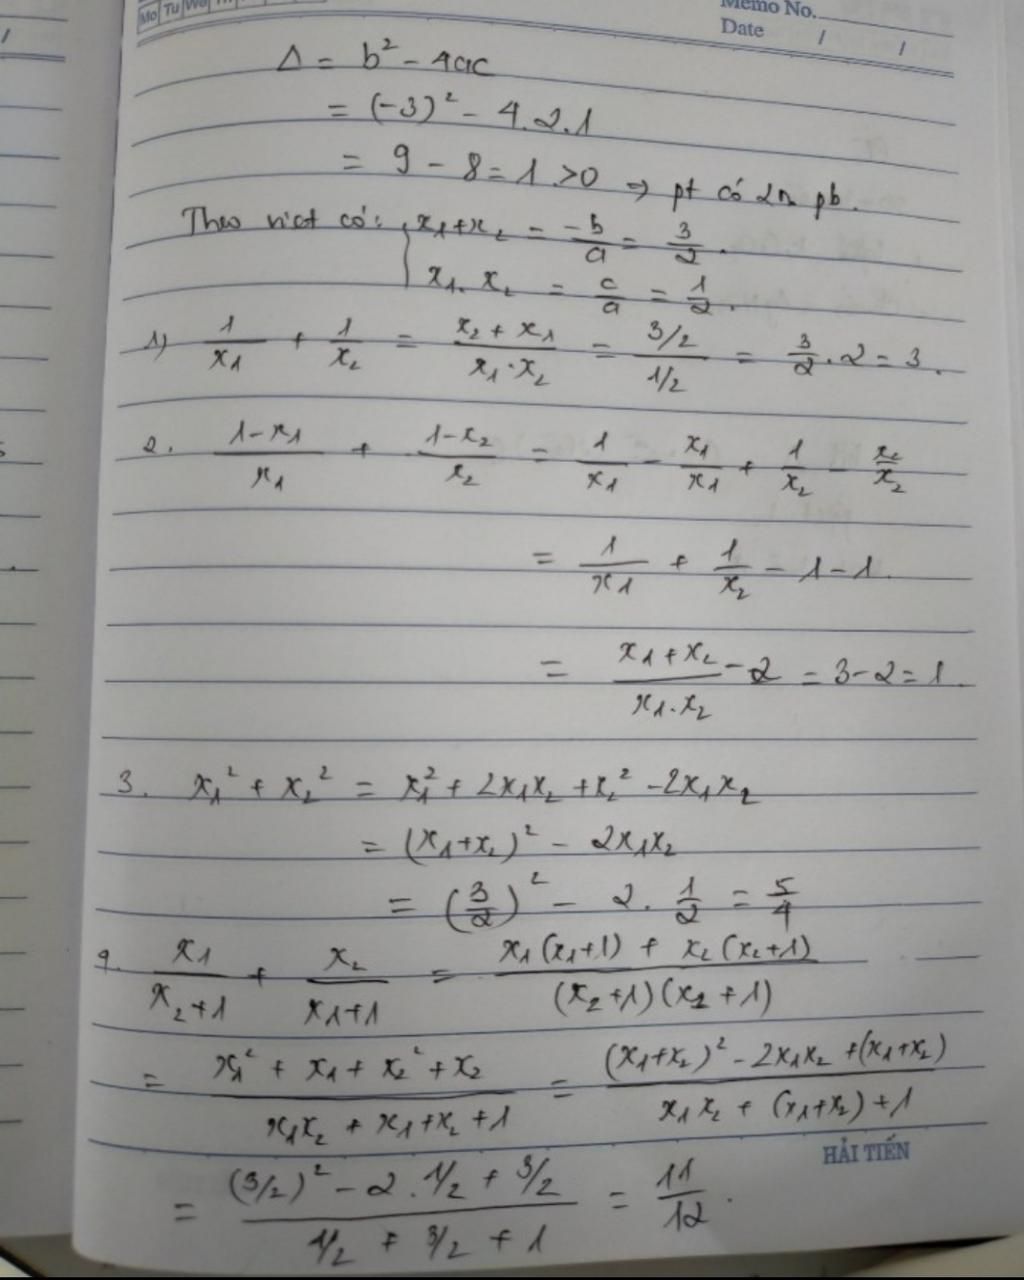 Mo Tu We
Memo No.
Date / /
Δ = b² - 4ac
= (-3)² - 4.2.1
= 9 - 8 = 1 > 0 => pt có 2n pb.
Theo viet có: { x₁+x₂ = -b/a = 3/2.
x₁. x₂ = c/a = 1/2.
1) 1/x₁ + 1/x₂ = (x₂ + x₁)/(x₁.x₂) = (3/2)/(1/2) = 3/2 . 2 = 3.
2. (1-x₁)/x₁ + (1-x₂)/x₂ = 1/x₁ - x₁/x₁ + 1/x₂ - x₂/x₂
= 1/x₁ + 1/x₂ - 1 - 1.
= (x₁+x₂)/(x₁.x₂) - 2 = 3-2 = 1.
3. x₁² + x₂² = x₁² + 2x₁x₂ + x₂² - 2x₁x₂
= (x₁+x₂)² - 2x₁x₂
= (3/2)² - 2. 1/2 = 5/4
4. x₁/(x₂+1) + x₂/(x₁+1) = (x₁(x₁+1) + x₂(x₂+1))/((x₂+1)(x₁+1))
= (x₁² + x₁ + x₂² + x₂)/(x₁x₂ + x₁+x₂+1) = ((x₁+x₂)² - 2x₁x₂ + (x₁+x₂))/(x₁x₂ + (x₁+x₂)+1)
HẢI TIẾN
= ((3/2)² - 2.1/2 + 3/2)/(1/2 + 3/2 + 1) = 11/12.